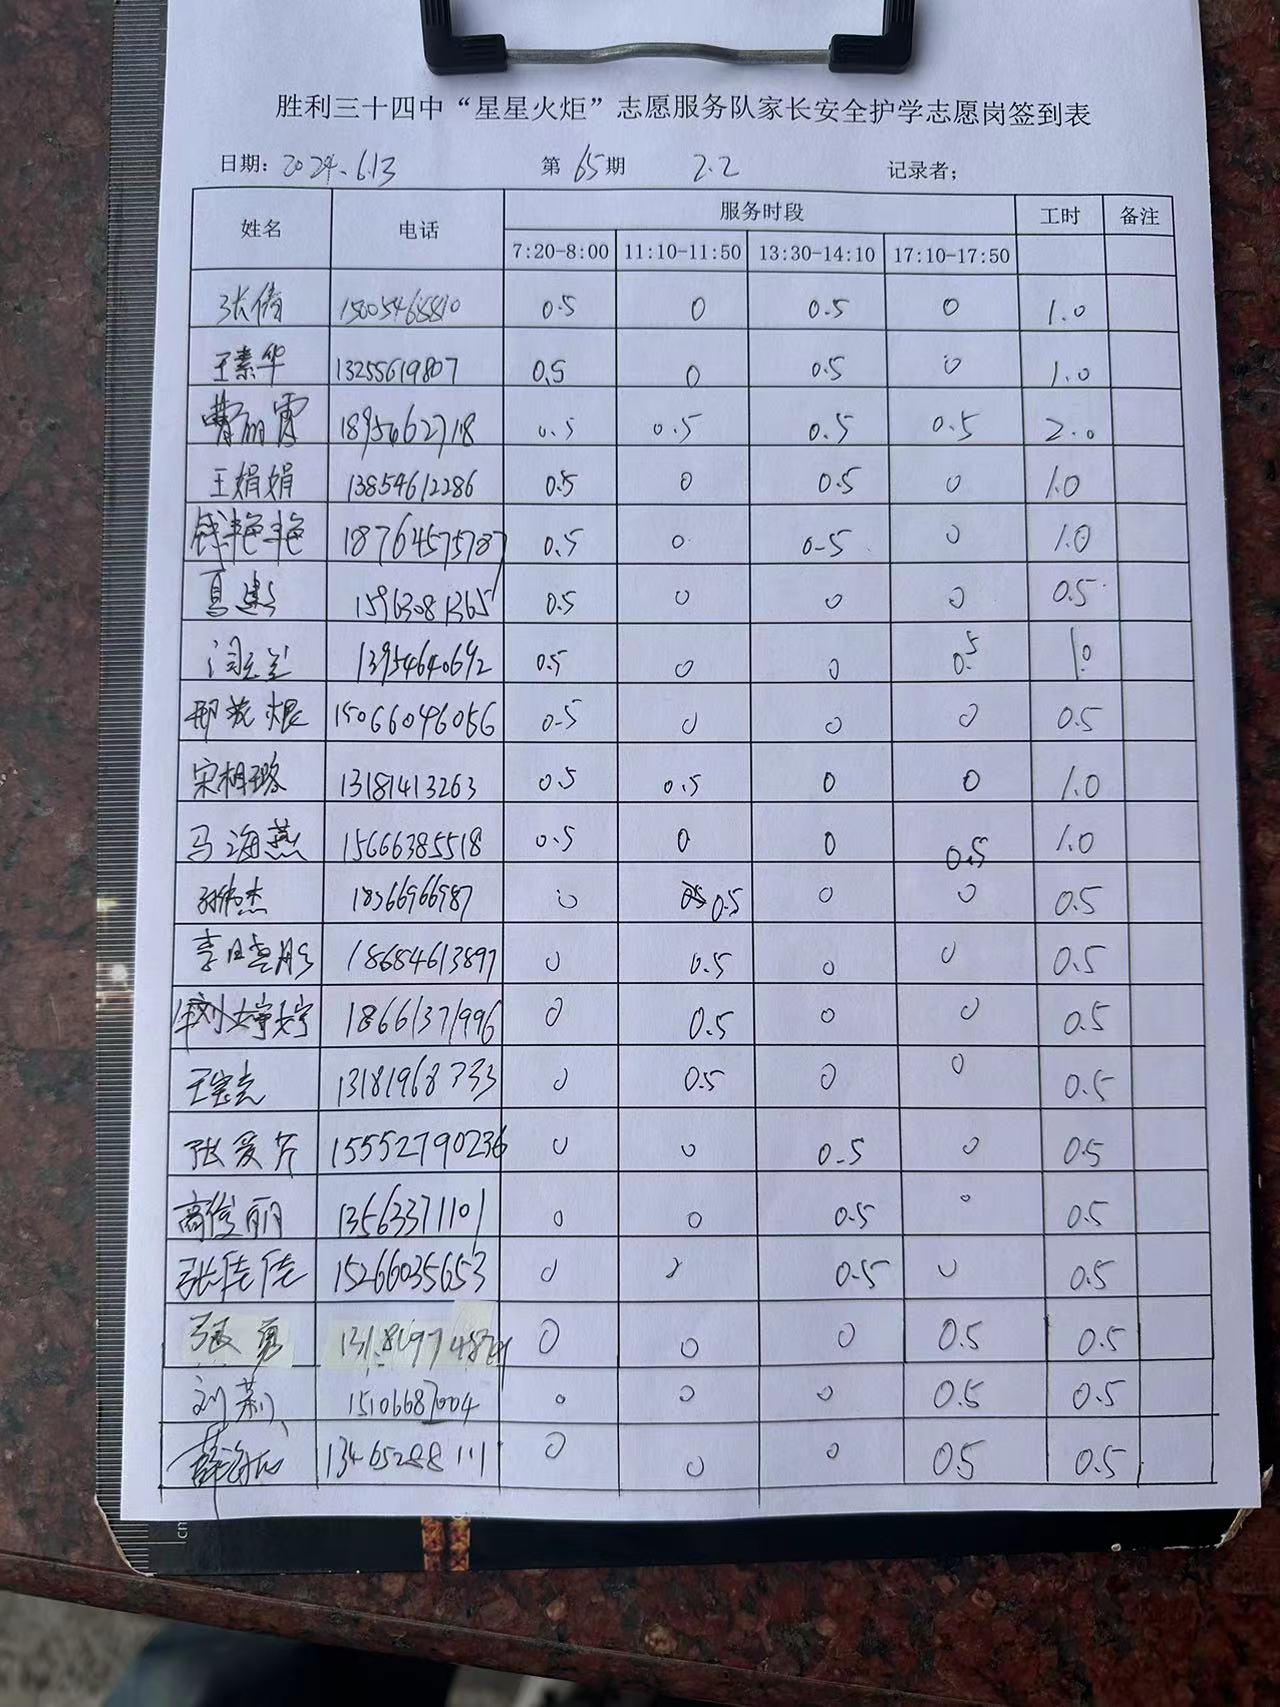 胜利三十四中“星星火炬”志愿服务队家长安全护学志愿岗签到表
日期: 2024.6.13 第 65 期 2.2 记录者;
姓名 电话 服务时段 工时 备注
7:20-8:00 11:10-11:50 13:30-14:10 17:10-17:50
张倩 15005465810 0.5 0 0.5 0 1.0
王素华 13255619807 0.5 0 0.5 0 1.0
曹丽霄 18954627118 0.5 0.5 0.5 0.5 2.0
王娟娟 13854612286 0.5 0 0.5 0 1.0
钱艳艳 18764575787 0.5 0 0.5 0 1.0
夏 15963081365 0.5 0 0 0 0.5
闫 13954640692 0.5 0 0 0.5 1.0
邢 15066046056 0.5 0 0 0 0.5
宋相璐 13181413263 0.5 0.5 0 0 1.0
马海燕 15666385518 0.5 0 0 0.5 1.0
孙伟杰 18366966987 0 0.5 0 0 0.5
李 18684613897 0 0.5 0 0 0.5
刘婷婷 18661371996 0 0.5 0 0 0.5
王 13181968733 0 0.5 0 0 0.5
张爱芹 15552790236 0 0 0.5 0 0.5
高俊丽 13563371101 0 0 0.5 0 0.5
张佳佳 15266035653 0 0 0.5 0 0.5
张勇 0 0 0 0.5 0.5
刘莉 15106687004 0 0 0 0.5 0.5
薛 13465288111 0 0 0 0.5 0.5
cm